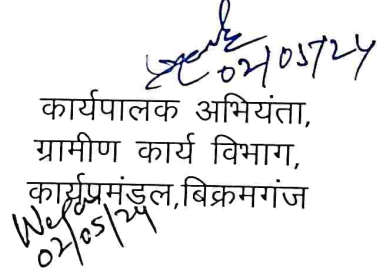 02/05/24
कार्यपालक अभियंता,
ग्रामीण कार्य विभाग,
कार्यप्रमंडल,बिक्रमगंज
02/05/24